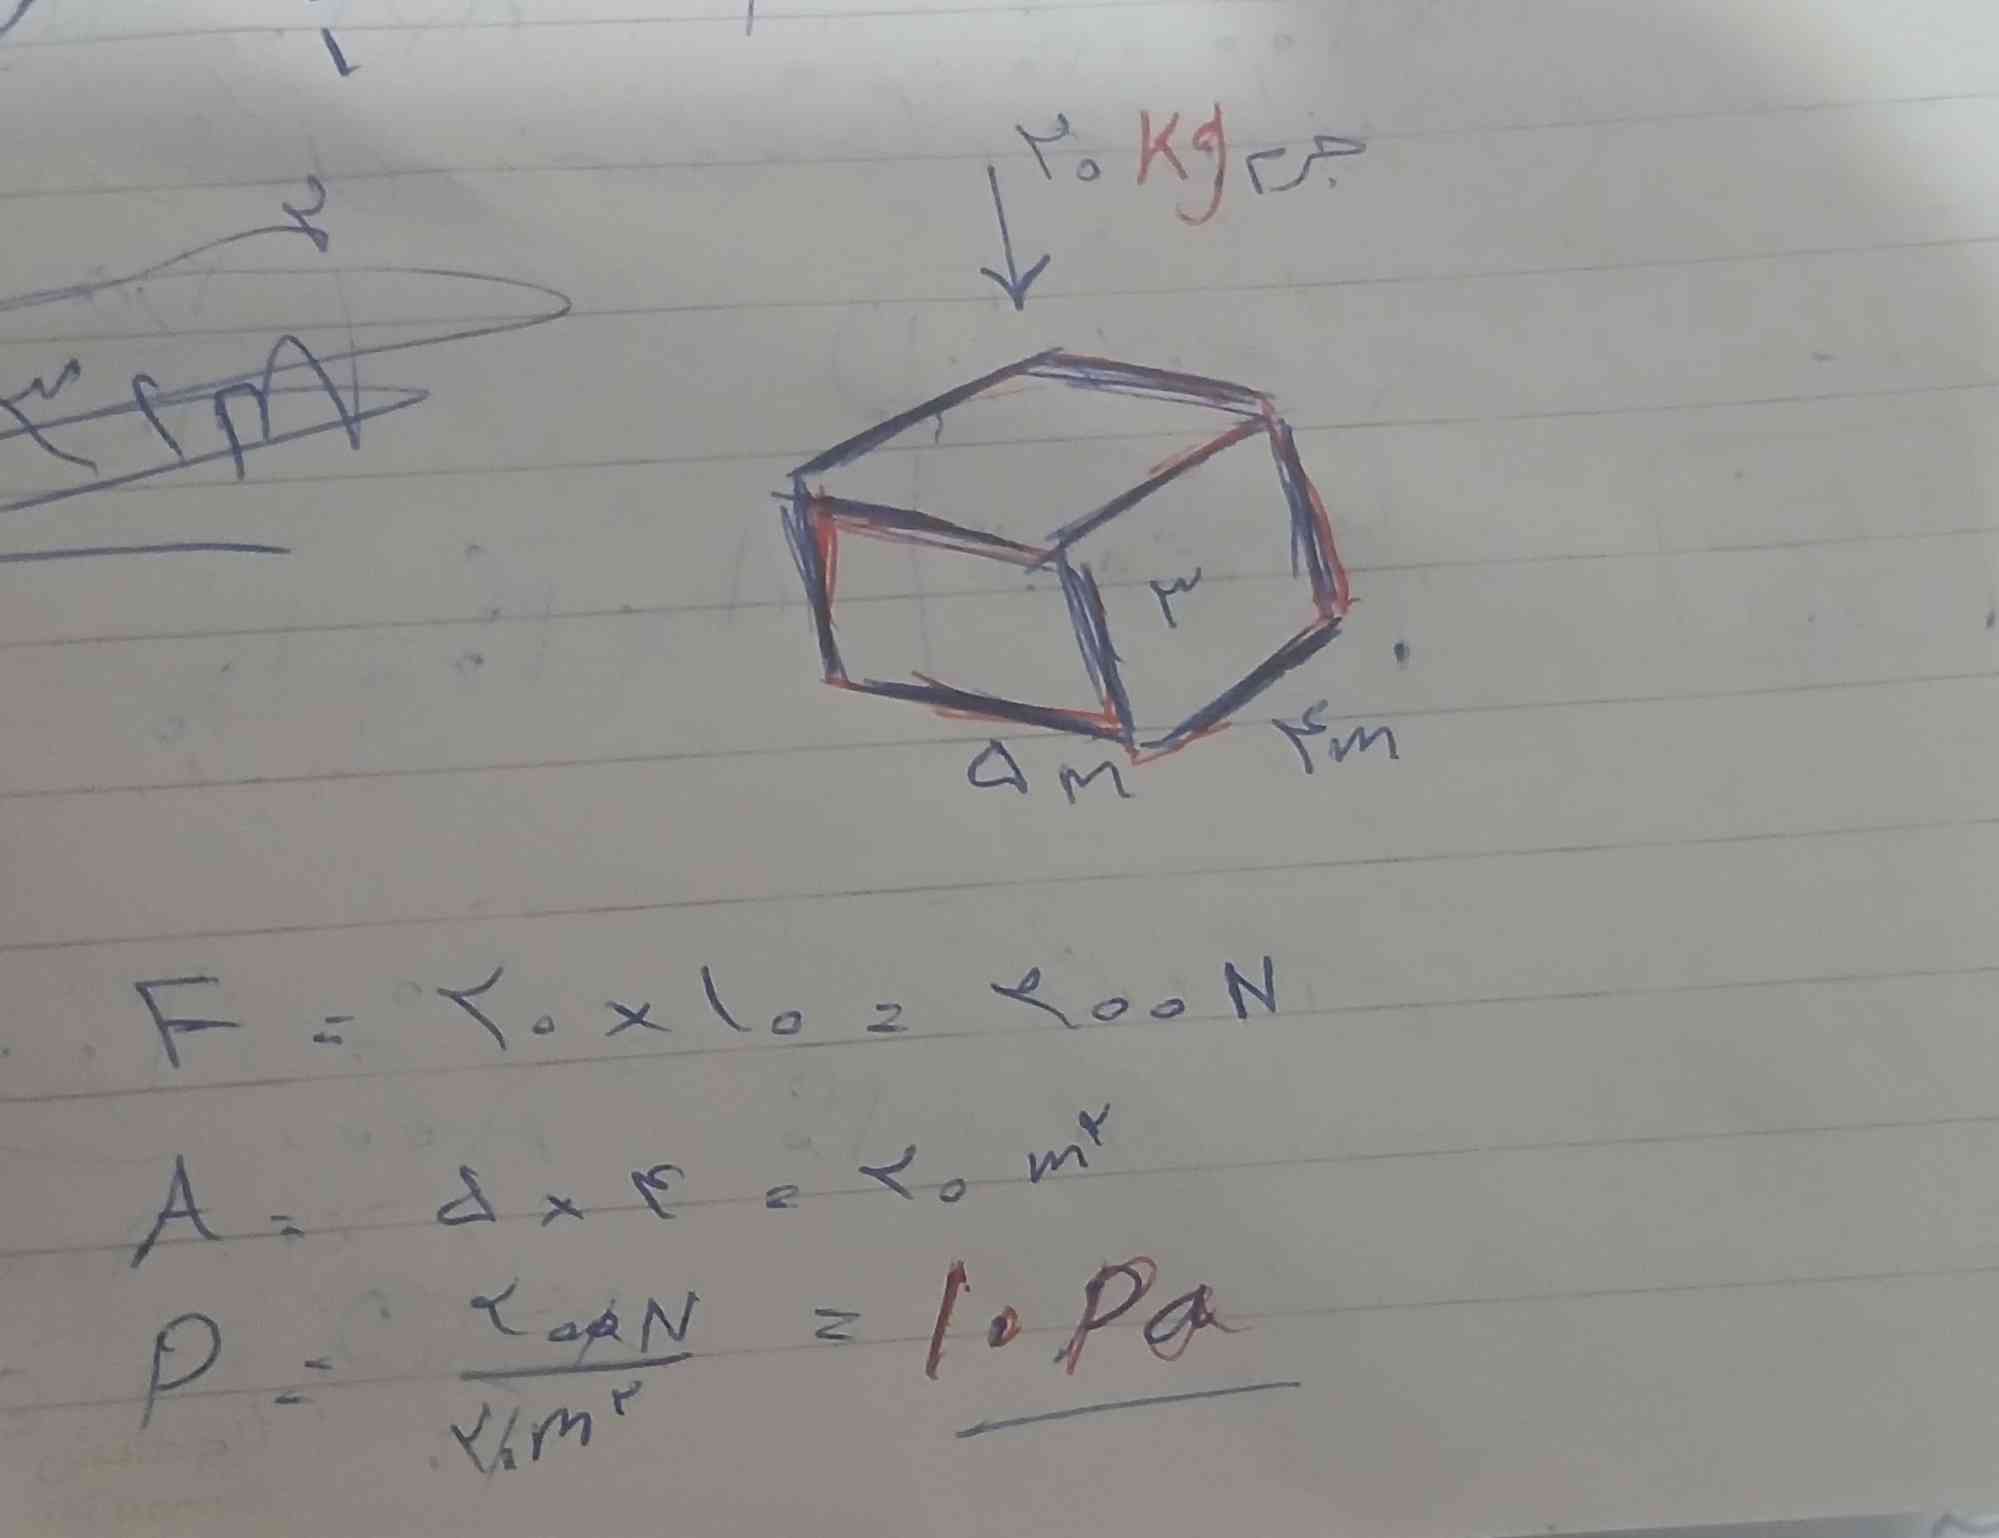 ۲
۲۰ Kg جرم
۳
۵ m
۴m
F = ۲۰ × ۱۰ = ۲۰۰ N
A = ۵ × ۴ = ۲۰ m²
P = ۲۰۰ N / ۲۰ m² = ۱۰ Pa